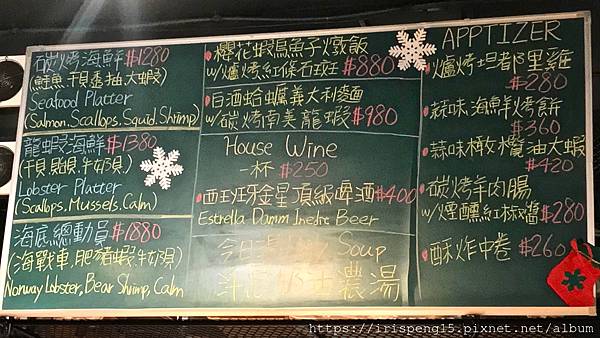 碳烤海鮮$1280
(鮭魚.干貝.透抽.大蝦)
Seafood Platter
(Salmon.Scallops.Squid.Shrimp)
龍蝦海鮮$1380
(干貝.貽貝.牛奶貝)
Lobster Platter
(Scallops.Mussels.Calm)
海底總動員$1880
(海戰車.肥豬蝦.牛奶貝)
Norway Lobster, Bear Shrimp, Calm
櫻花蝦烏魚子燉飯
w/爐烤紅條石斑 $880
白酒蛤蠣義大利麵
w/碳烤南美龍蝦 $980
House Wine
一杯 $250
西班牙金星頂級啤酒$400
Estrella Damm Inedit Beer
今日湯 Soup
濃湯
APPTIZER
爐烤坦都里雞
$280
蒜味海鮮烤餅
$360
蒜味橄欖油大蝦
$420
碳烤羊肉腸
w/煙燻紅椒醬$280
酥炸中卷 $260
https://irispeng15.pixnet.net/album